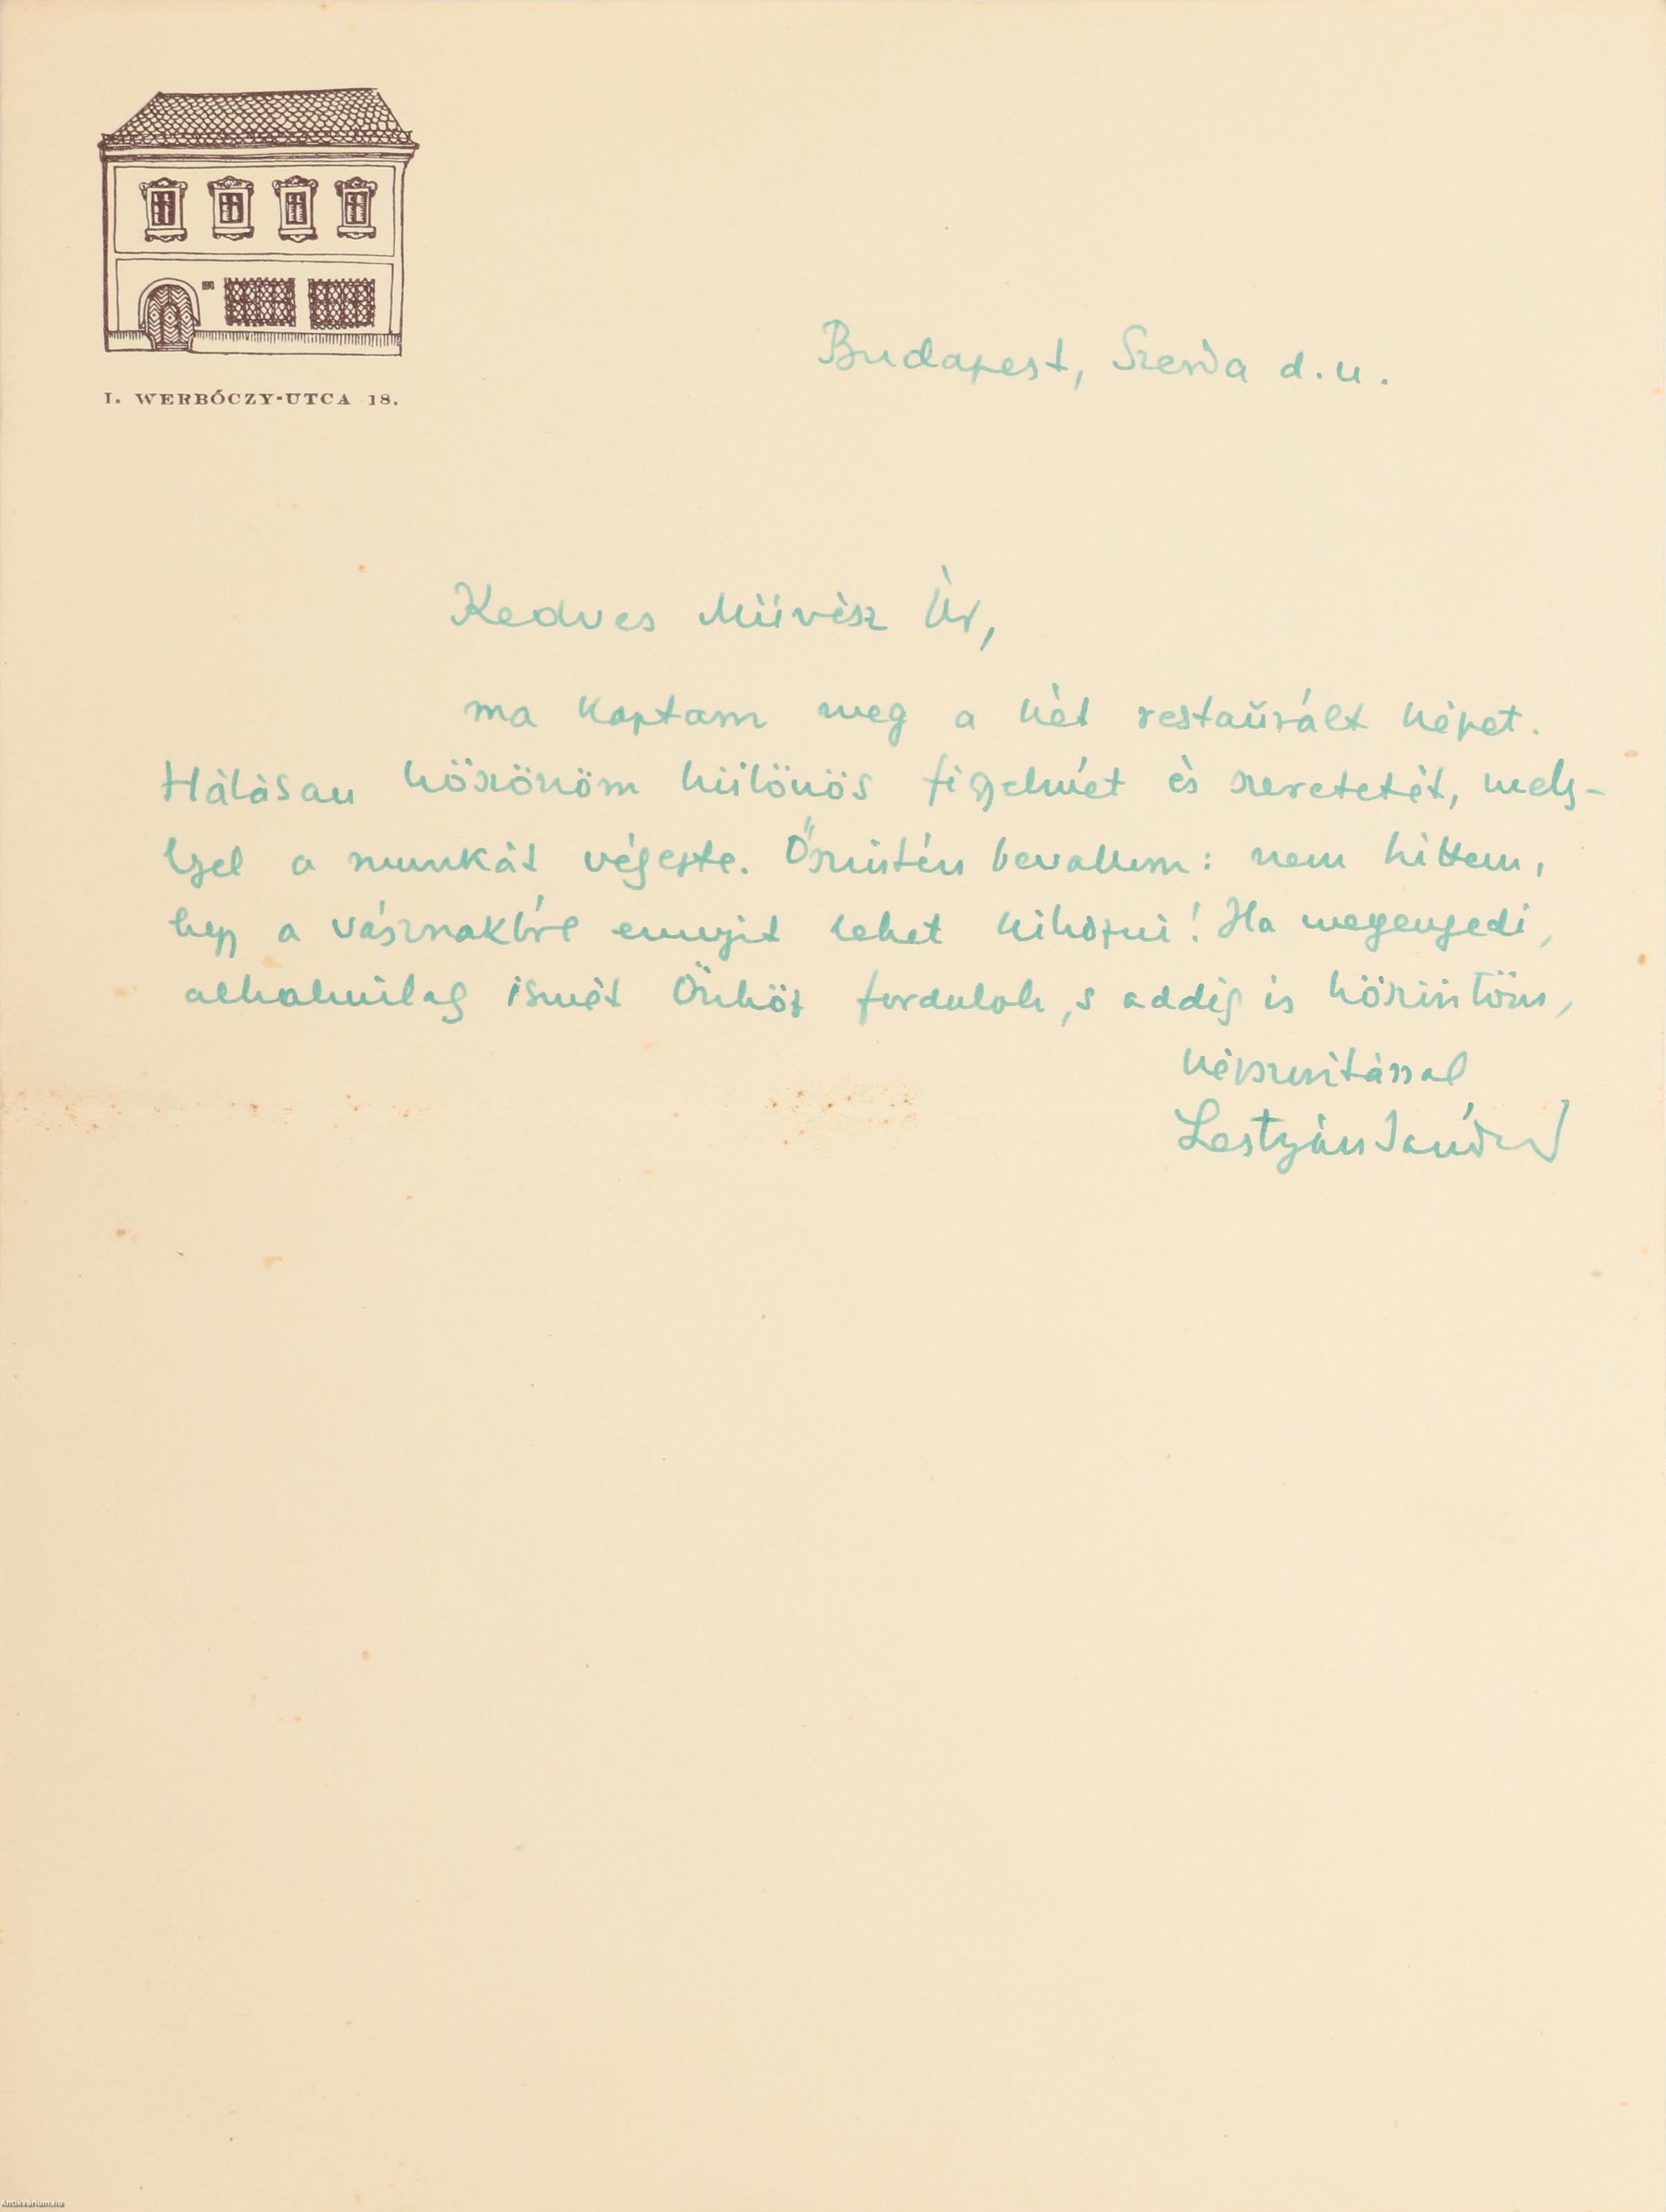 I. WERBŐCZY-UTCA 18.
Budapest, Szerda d. u.
Kedves Müvész Úr,
ma kaptam meg a két restaŭrált képet.
Hálásan köszönöm különös figyelmét és szeretetét, mely-
lyel a munkát végezte. Őszintén bevallom: nem hittem,
hogy a vásznakból ennyit lehet kihozni! Ha megengedi,
alkalmilag ismét Önhöz fordulok, s addig is köszöntöm,
kézszoritással
Lestyán Sándor
Antikvarium.hu